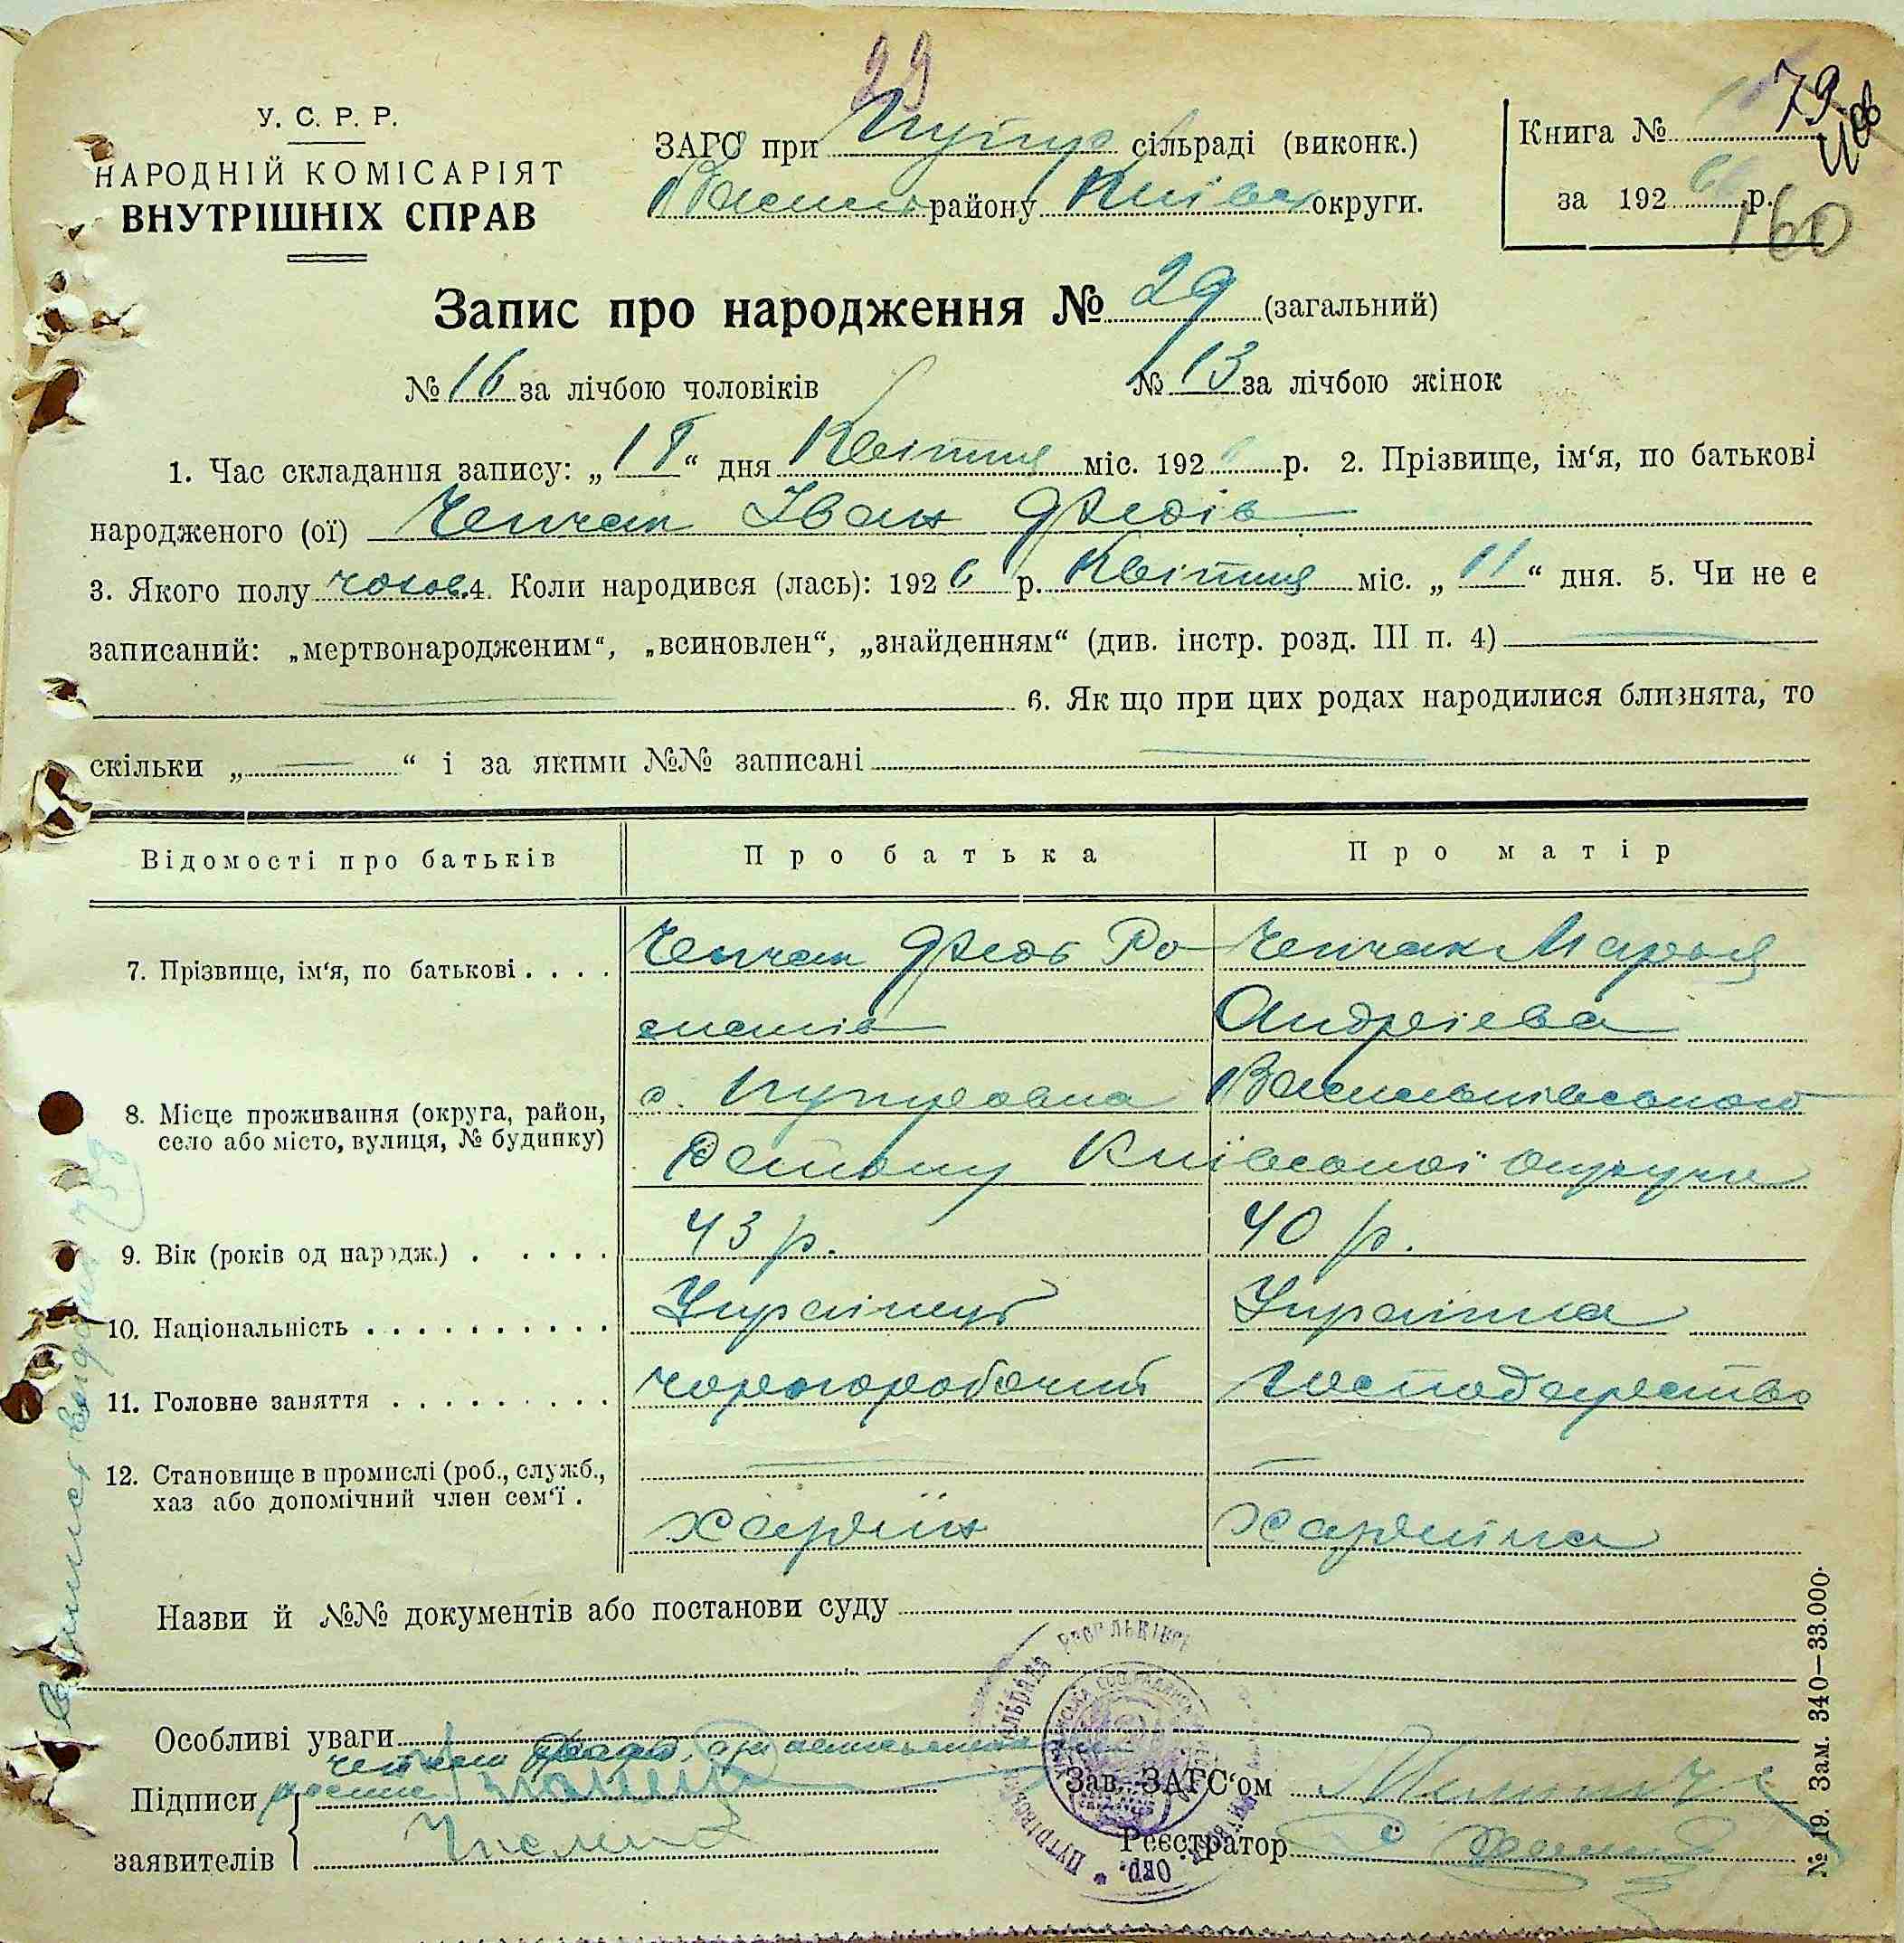 29
У. С. Р. Р.
НАРОДНІЙ КОМІСАРІЯТ
ВНУТРІШНІХ СПРАВ
ЗАГС при Путр сільраді (виконк.)
Васильк району Київс округи.
Книга № 79
за 1926 р.
160
Запис про народження № 29 (загальний)
№ 16 за лічбою чоловіків № 13 за лічбою жінок
1. Час складання запису: „18“ дня Квітня міс. 192 р. 2. Прізвище, ім‘я, по батькові
народженого (ої) Іван Федів
3. Якого полу чолов. 4. Коли народився (лась): 1926 р. Квітня міс. „11“ дня. 5. Чи не є
записаний: „мертвонародженим“, „всиновлен“, „знайденням“ (див. інстр. розд. III п. 4)
6. Як що при цих родах народилися близнята, то
скільки „ “ і за якими №№ записані
Відомості про батьків Про батька Про матір
7. Прізвище, ім‘я, по батькові . . . . Федь Ро- Марья
манів Андріева
8. Місце проживання (округа, район, село або місто, вулиця, № будинку) с. Путровка Васильківського
Району Київської округи
9. Вік (років од народж.) . . . . . 43 р. 40 р.
10. Національність . . . . . . . . . . Українець Українка
11. Головне заняття . . . . . . . . . чорноробочий господарство
12. Становище в промислі (роб., служб.,
хаз або допомічний член сем‘ї .
Назви й №№ документів або постанови суду
Особливі уваги
Підписи
заявителів
Зав. ЗАГС‘ом
Реєстратор
№ 19. Зам. 340—33.000.